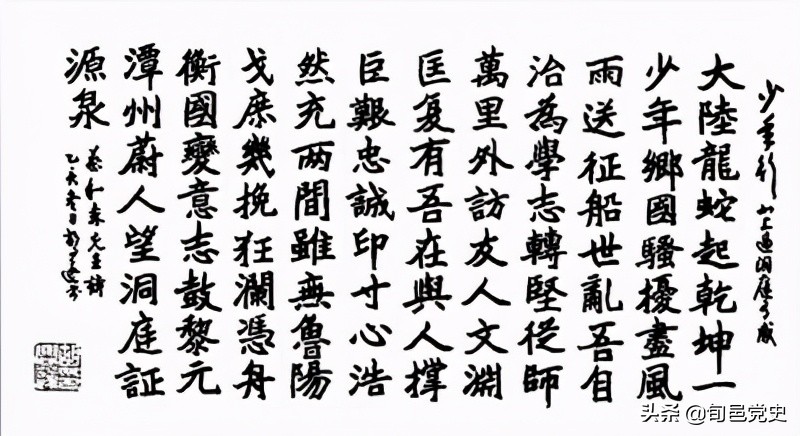 少年行 北上過洞庭有感
大陸龍蛇起乾坤一
少年鄉國騷擾盡風
雨送征船世亂吾自
治為學志轉堅從師
萬里外訪友人文淵
匡复有吾在與人撑
巨艱忠誠印寸心浩
然充两間雖無魯陽
戈庶幾挽狂瀾憑舟
衡國變意志鼓黎元
潭州蔚人望洞庭証
源泉
蔡和森先生詩
乙亥冬日
头条 @旬邑党史